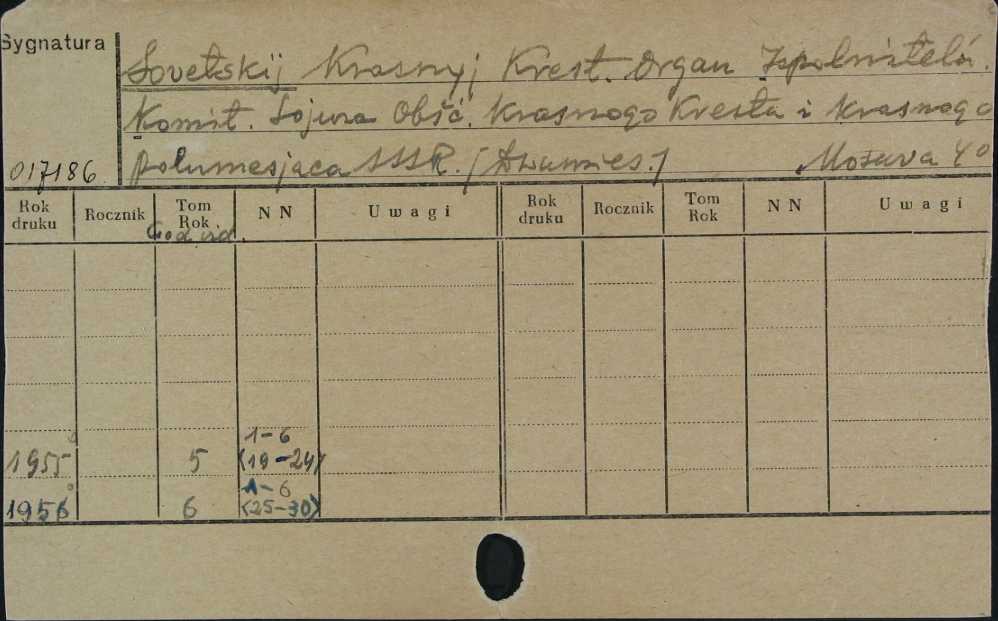 Sygnatura
Sovetskij Krasnyj Krest. Organ Ispolnitelń.
Komit. Sojuza Obšč. Krasnogo Kresta i Krasnogo
017186 Polumesjaca SSSR. [Dwumies.] Moskva 4°
Rok druku Rocznik Tom Rok NN Uwagi Rok druku Rocznik Tom Rok NN Uwagi
God izd.
1-6
1955 5 (19-24)
1-6
1956 6 (25-30)